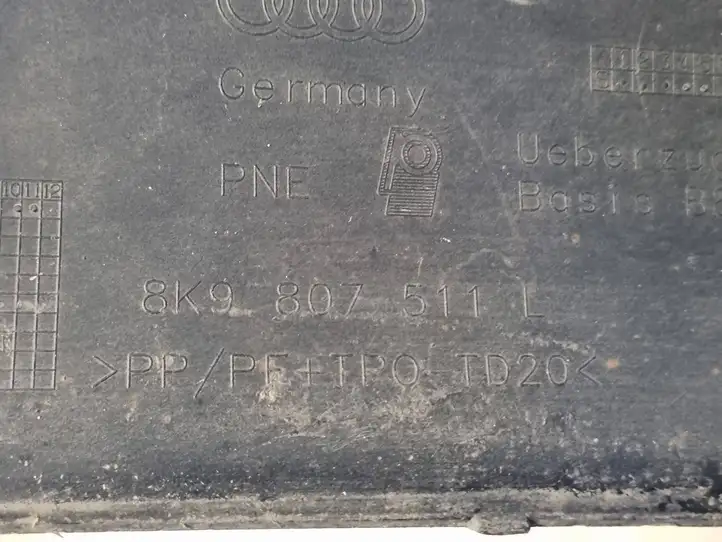 Germany
PNE
Ueberzu
Basis B
10 11 12
8K9 807 511 L
>PP/PE+TPO-TD20<